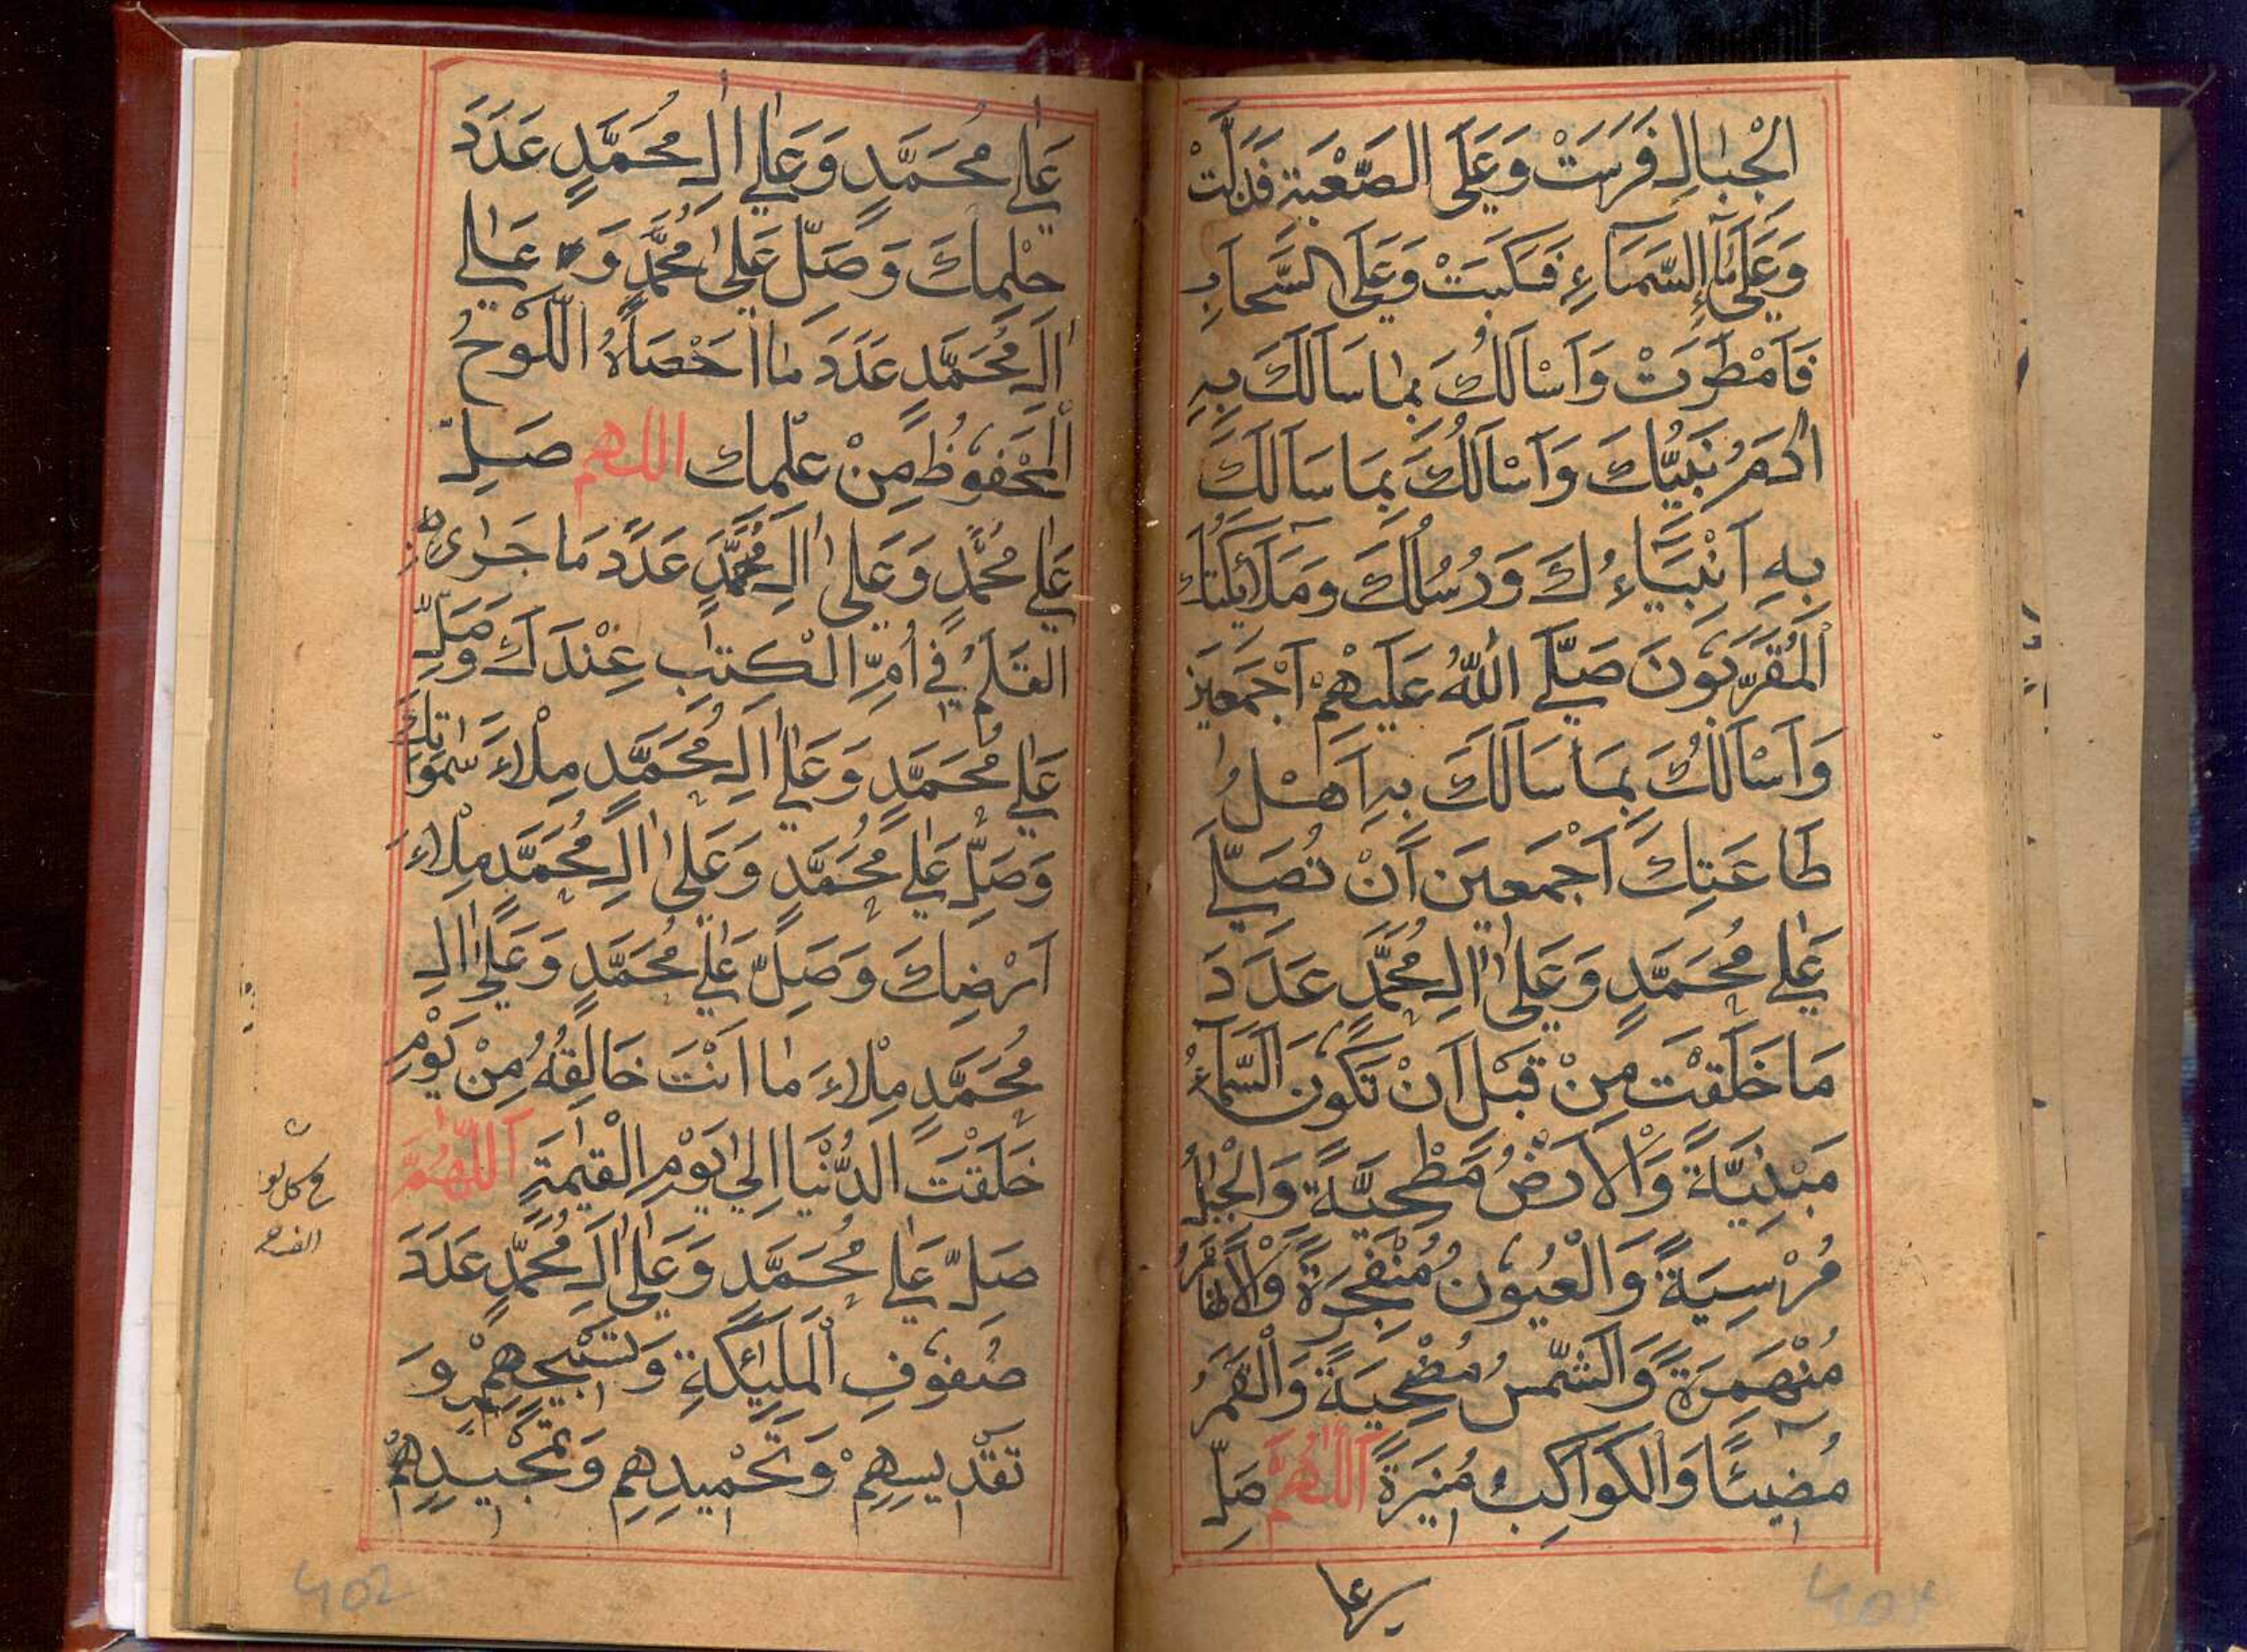 الْجِبَالِ فَرَسَتْ وَعَلَى الصَّعْبَةِ فَذَلَّتْ
وَعَلَى مَآءِ السَّمَآءِ فَسَكَبَتْ وَعَلَى السَّحَابِ
فَاَمْطَرَتْ وَاَسْاَلُكَ بِمَا سَاَلَكَ بِهِ
اٰدَمُ نَبِيُّكَ وَاَسْاَلُكَ بِمَا سَاَلَكَ
بِهِ اَنْبِيَآءُكَ وَرُسُلُكَ وَمَلَآئِكَتُكَ
الْمُقَرَّبُوْنَ صَلَّى اللّٰهُ عَلَيْهِمْ اَجْمَعِيْنَ
وَاَسْاَلُكَ بِمَا سَاَلَكَ بِهِ اَهْلُ
طَاعَتِكَ اَجْمَعِيْنَ اَنْ تُصَلِّيَ
عَلٰى مُحَمَّدٍ وَعَلٰى اٰلِ مُحَمَّدٍ عَدَدَ
مَا خَلَقْتَ مِنْ قَبْلِ اَنْ تَكُوْنَ السَّمَآءُ
مَبْنِيَّةً وَالْاَرْضُ مَطْحِيَّةً وَالْجِبَالُ
مُرْسِيَةً وَالْعُيُوْنُ مُنْفَجِرَةً وَالْاَنْهَارُ
مُنْهَمِرَةً وَالشَّمْسُ مُضْحِيَةً وَالْقَمَرُ
مُضِيْئًا وَالْكَوَاكِبُ مُنِيْرَةً اَللّٰهُمَّ صَلِّ
على
عَلٰى مُحَمَّدٍ وَعَلٰى اٰلِ مُحَمَّدٍ عَدَدَ
حِلْمِكَ وَصَلِّ عَلٰى مُحَمَّدٍ وَعَلٰى
اٰلِ مُحَمَّدٍ عَدَدَ مَا اَحْصَاهُ اللَّوْحُ
الْمَحْفُوْظُ مِنْ عِلْمِكَ اللهم صَلِّ
عَلٰى مُحَمَّدٍ وَعَلٰى اٰلِ مُحَمَّدٍ عَدَدَ مَا جَرٰى بِهِ
الْقَلَمُ فِيْ اُمِّ الْكِتٰبِ عِنْدَكَ وَصَلِّ
عَلٰى مُحَمَّدٍ وَعَلٰى اٰلِ مُحَمَّدٍ مِلْاَءَ سَمٰوَاتِكَ
وَصَلِّ عَلٰى مُحَمَّدٍ وَعَلٰى اٰلِ مُحَمَّدٍ مِلْاَءَ
اَرْضِكَ وَصَلِّ عَلٰى مُحَمَّدٍ وَعَلٰى اٰلِ
مُحَمَّدٍ مِلْاَءَ مَا اَنْتَ خَالِقُهُ مِنْ يَوْمِ
خَلَقْتَ الدُّنْيَا اِلٰى يَوْمِ الْقِيٰمَةِ اَللّٰهُمَّ
صَلِّ عَلٰى مُحَمَّدٍ وَعَلٰى اٰلِ مُحَمَّدٍ عَدَدَ
صُفُوْفِ الْمَلٰئِكَةِ وَتَسْبِيْحِهِمْ وَ
تَقْدِيْسِهِمْ وَتَحْمِيْدِهِمْ وَتَمْجِيْدِهِمْ
402